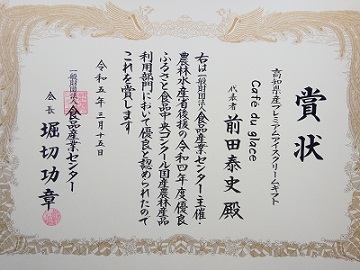 賞状
高知県産プレミアムアイスクリームギフト
Café du glace
代表者 前田泰史 殿
右は一般財団法人食品産業センター主催・
農林水産省後援の令和四年度優良
ふるさと食品中央コンクール国産農林産品
利用部門において優良と認められたので
これを賞します
令和五年三月十五日
一般財団法人食品産業センター
会長 堀切功章